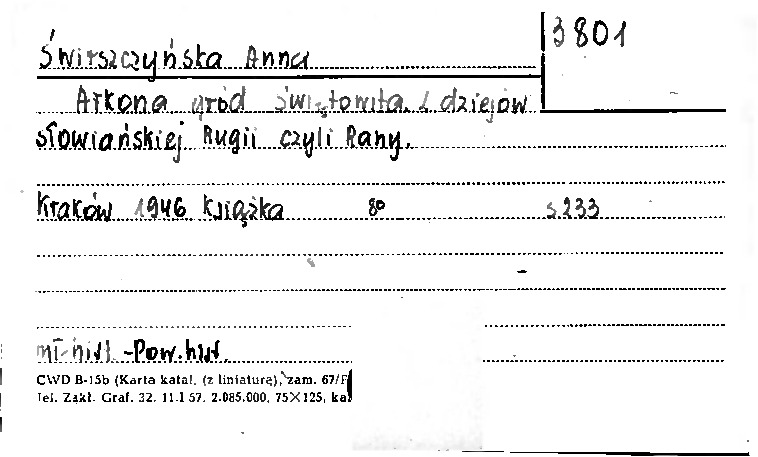 3801
Świrszczyńska Anna
Arkona gród Świętowita. Z dziejów
słowiańskiej Rugii czyli Rany.
Kraków 1946 Książka 8° s.233
-Pow.hist.
CWD B-15b (Karta katal. (z liniaturą), zam. 67/F
Tel. Zakł. Graf. 32. 11.I 57. 2.085.000. 75×125, ka